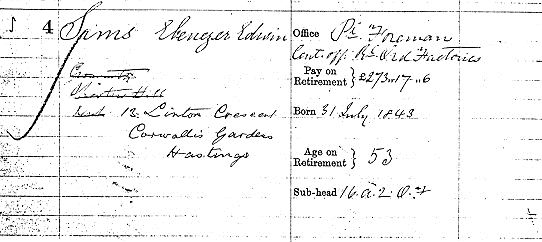 4 Sims Ebenezer Edwin
12 Linton Crescent
Cornwallis Gardens
Hastings
Office Pr. Foreman
Cont. off. Rl. Ord Factories
Pay on Retirement } £273..17..6
Born 31 July 1843
Age on Retirement } 53
Sub-head 16.a.2.